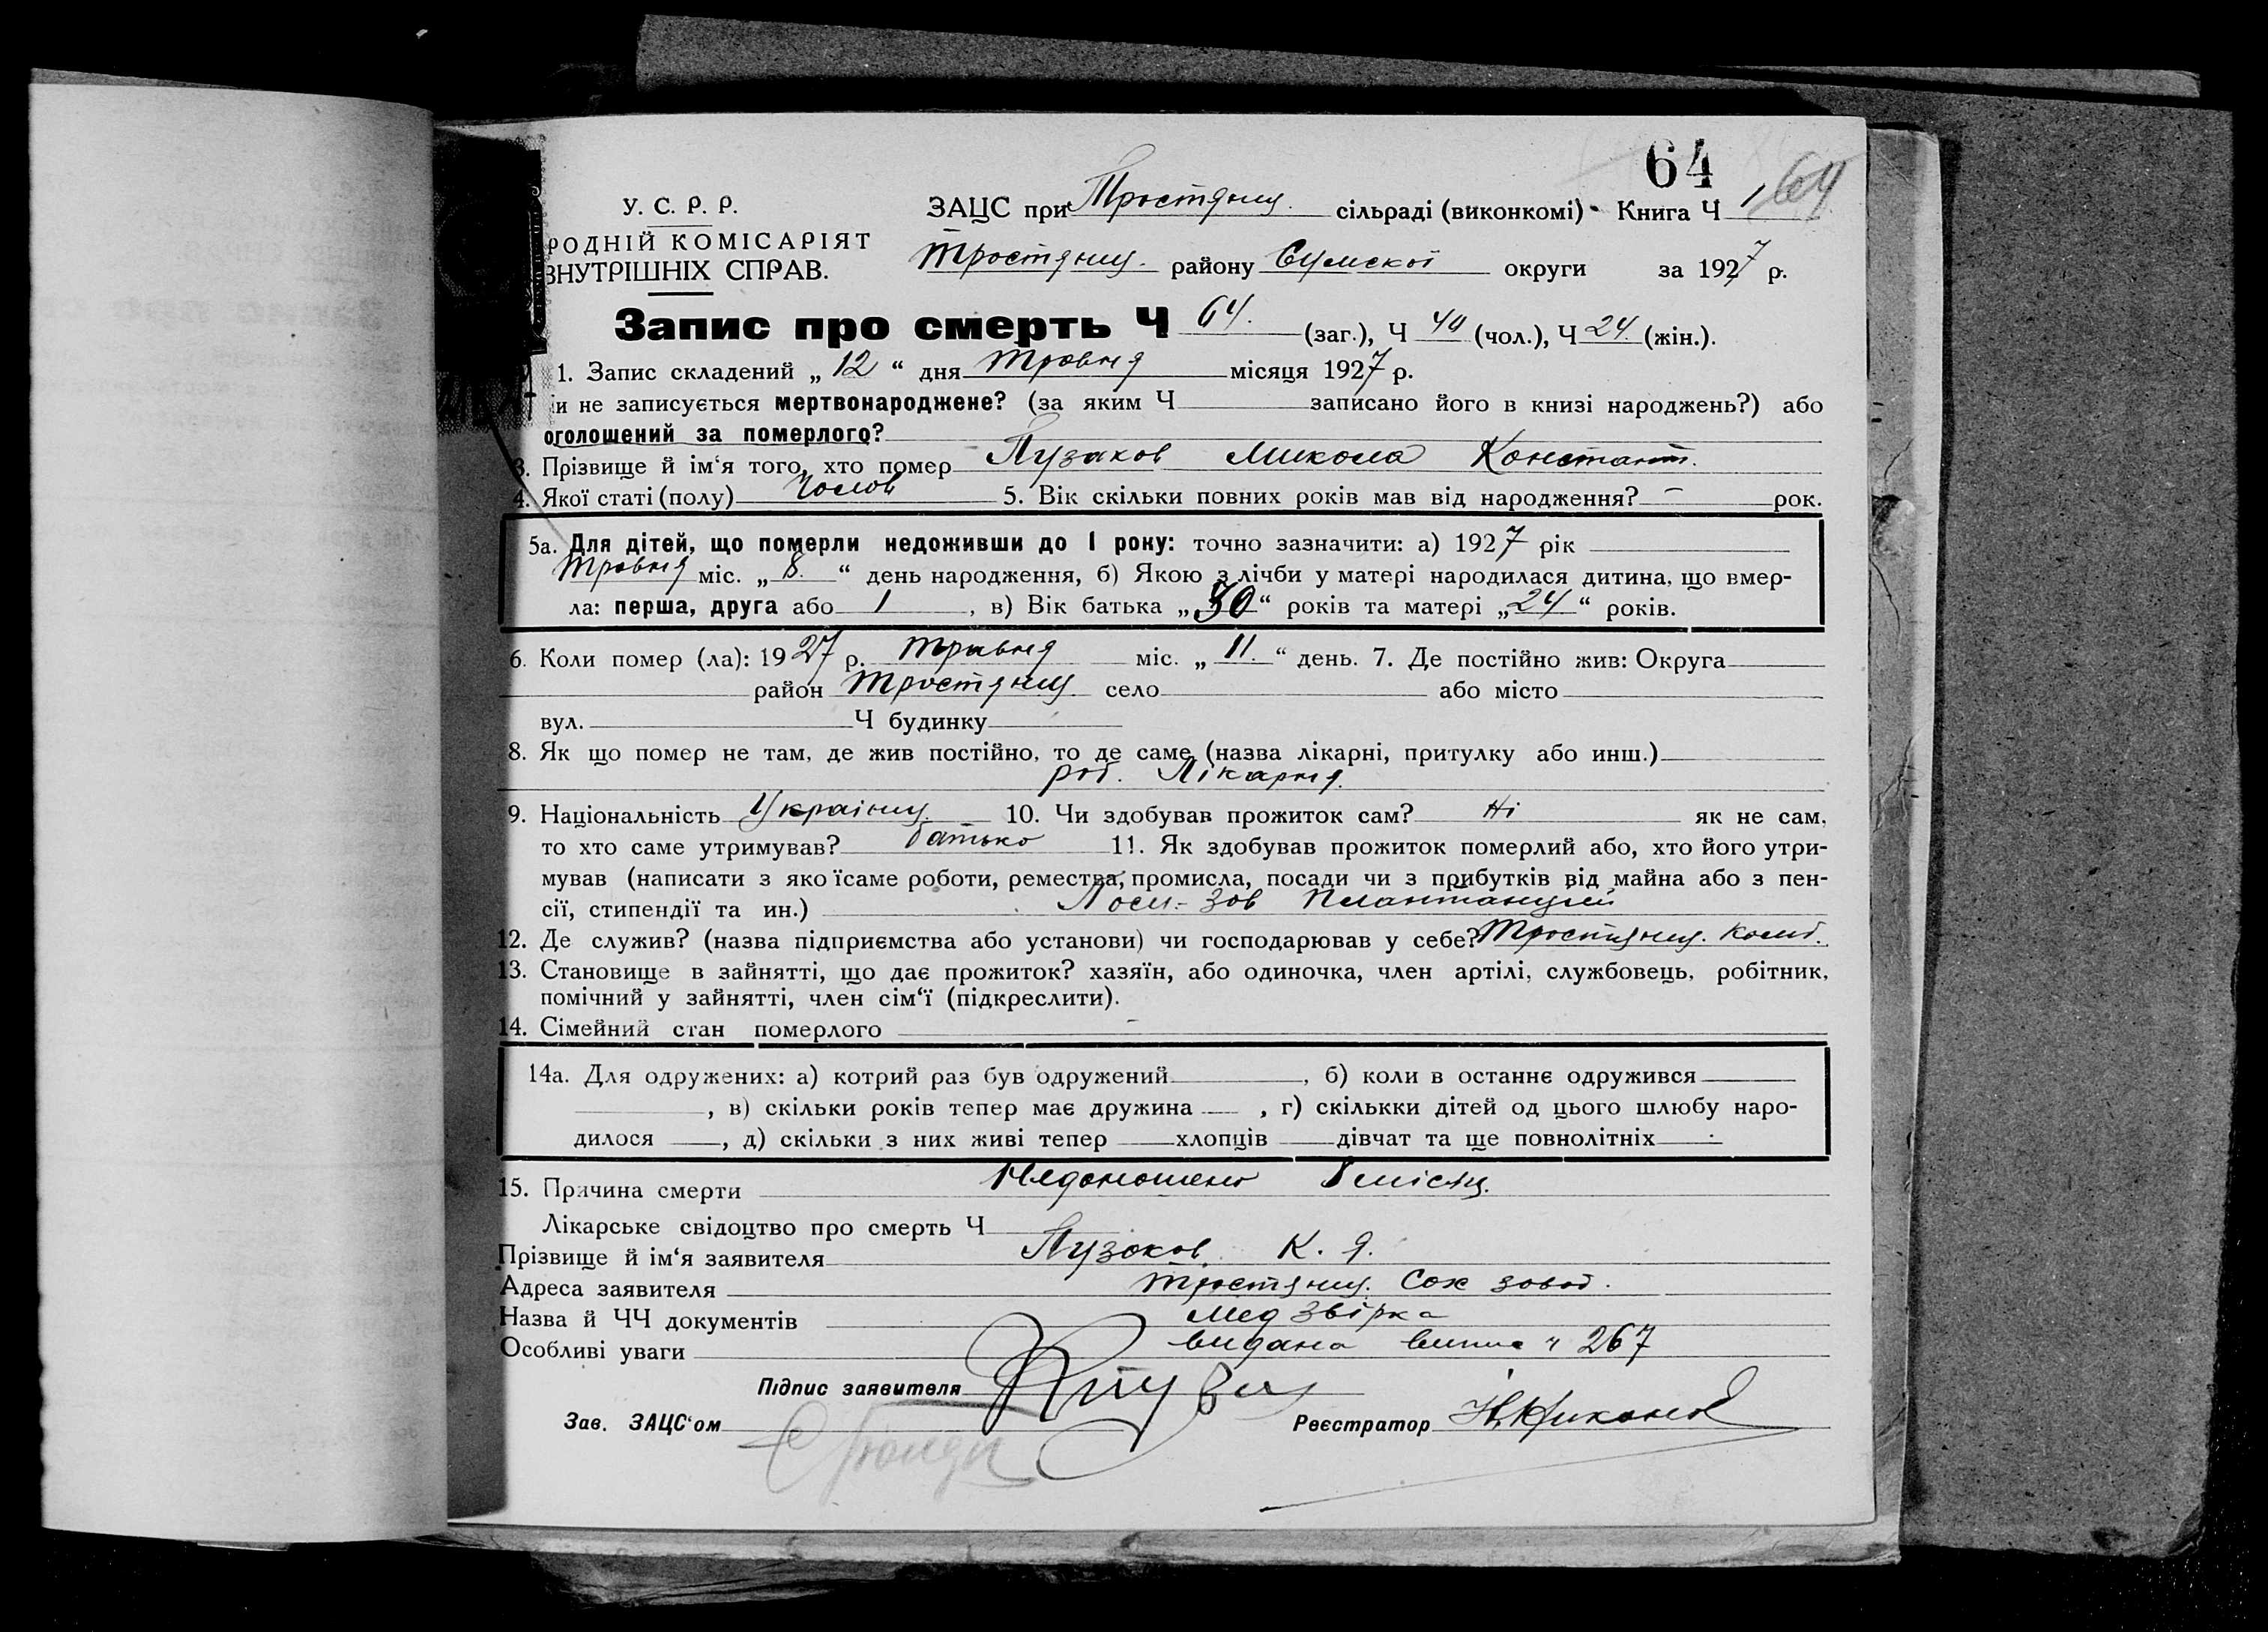 64
64
У. С. Р. Р.
ЗАЦС при Тростянец. сільраді (виконкомі) Книга Ч 1
РОДНІЙ КОМІСАРІЯТ
ВНУТРІШНІХ СПРАВ.
Тростянец. району Сумської округи за 1927 р.
Запис про смерть Ч 64. (заг.), Ч 40 (чол.), Ч 24 (жін.).
1. Запис складений „ 12 “ дня Травня місяця 1927 р.
и не записується мертвонароджене? (за яким Ч записано його в книзі народжень?) або
оголошений за померлого?
3. Прізвище й ім‘я того, хто помер Пузаков Микола Констант.
4. Якої статі (полу) Чолов 5. Вік скільки повних років мав від народження? – рок.
5а. Для дітей, що померли недоживши до 1 року: точно зазначити: а) 1927 рік
Травня міс. „ 8. “ день народження, б) Якою з лічби у матері народилася дитина, що вмер-
ла: перша, друга або 1 , в) Вік батька „30“ років та матері „24“ років.
6. Коли помер (ла): 1927 р. травня міс. „ 11. “ день. 7. Де постійно жив: Округа
район Тростянец. село або місто
вул. Ч будинку
8. Як що помер не там, де жив постійно, то де саме (назва лікарні, притулку або инш.)
роб. Лікарня.
9. Національність Українец. 10. Чи здобував прожиток сам? Ні як не сам,
то хто саме утримував? батько 11. Як здобував прожиток померлий або, хто його утри-
мував (написати з якоїсаме роботи, ремества, промисла, посади чи з прибутків від майна або з пен-
сії, стипендії та ин.) Зав Плантацией
12. Де служив? (назва підприємства або установи) чи господарював у себе? Тростянец. комб.
13. Становище в зайнятті, що дає прожиток? хазяїн, або одиночка, член артілі, службовець, робітник,
помічний у зайнятті, член сім‘ї (підкреслити).
14. Сімейний стан померлого –
14а. Для одружених: а) котрий раз був одружений , б) коли в останнє одружився
, в) скільки років тепер має дружина , г) скількки дітей од цього шлюбу наро-
дилося , д) скільки з них живі тепер хлопців дівчат та ще повнолітніх
15. Причина смерти Недоношено місяц.
Лікарське свідоцтво про смерть Ч
Прізвище й ім‘я заявителя Пузаков К. Я.
Адреса заявителя Тростянец. Сах завод.
Назва й ЧЧ документів Мед звірка
Особливі уваги видано випис ч 267
Підпис заявителя
Зав. ЗАЦС‘ом Реєстратор